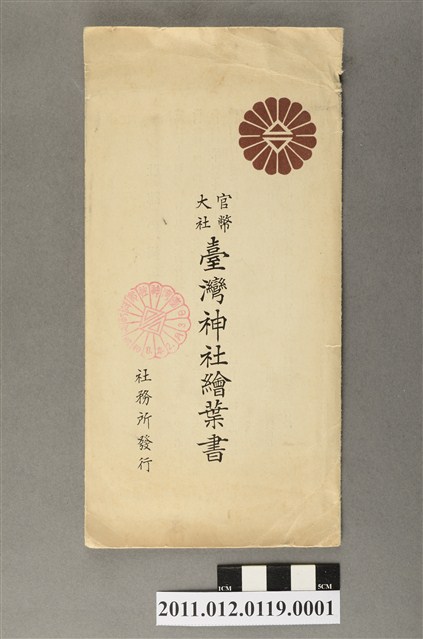 官幣
大社
臺灣神社繪葉書
社務所發行
1CM
5CM
2011.012.0119.0001